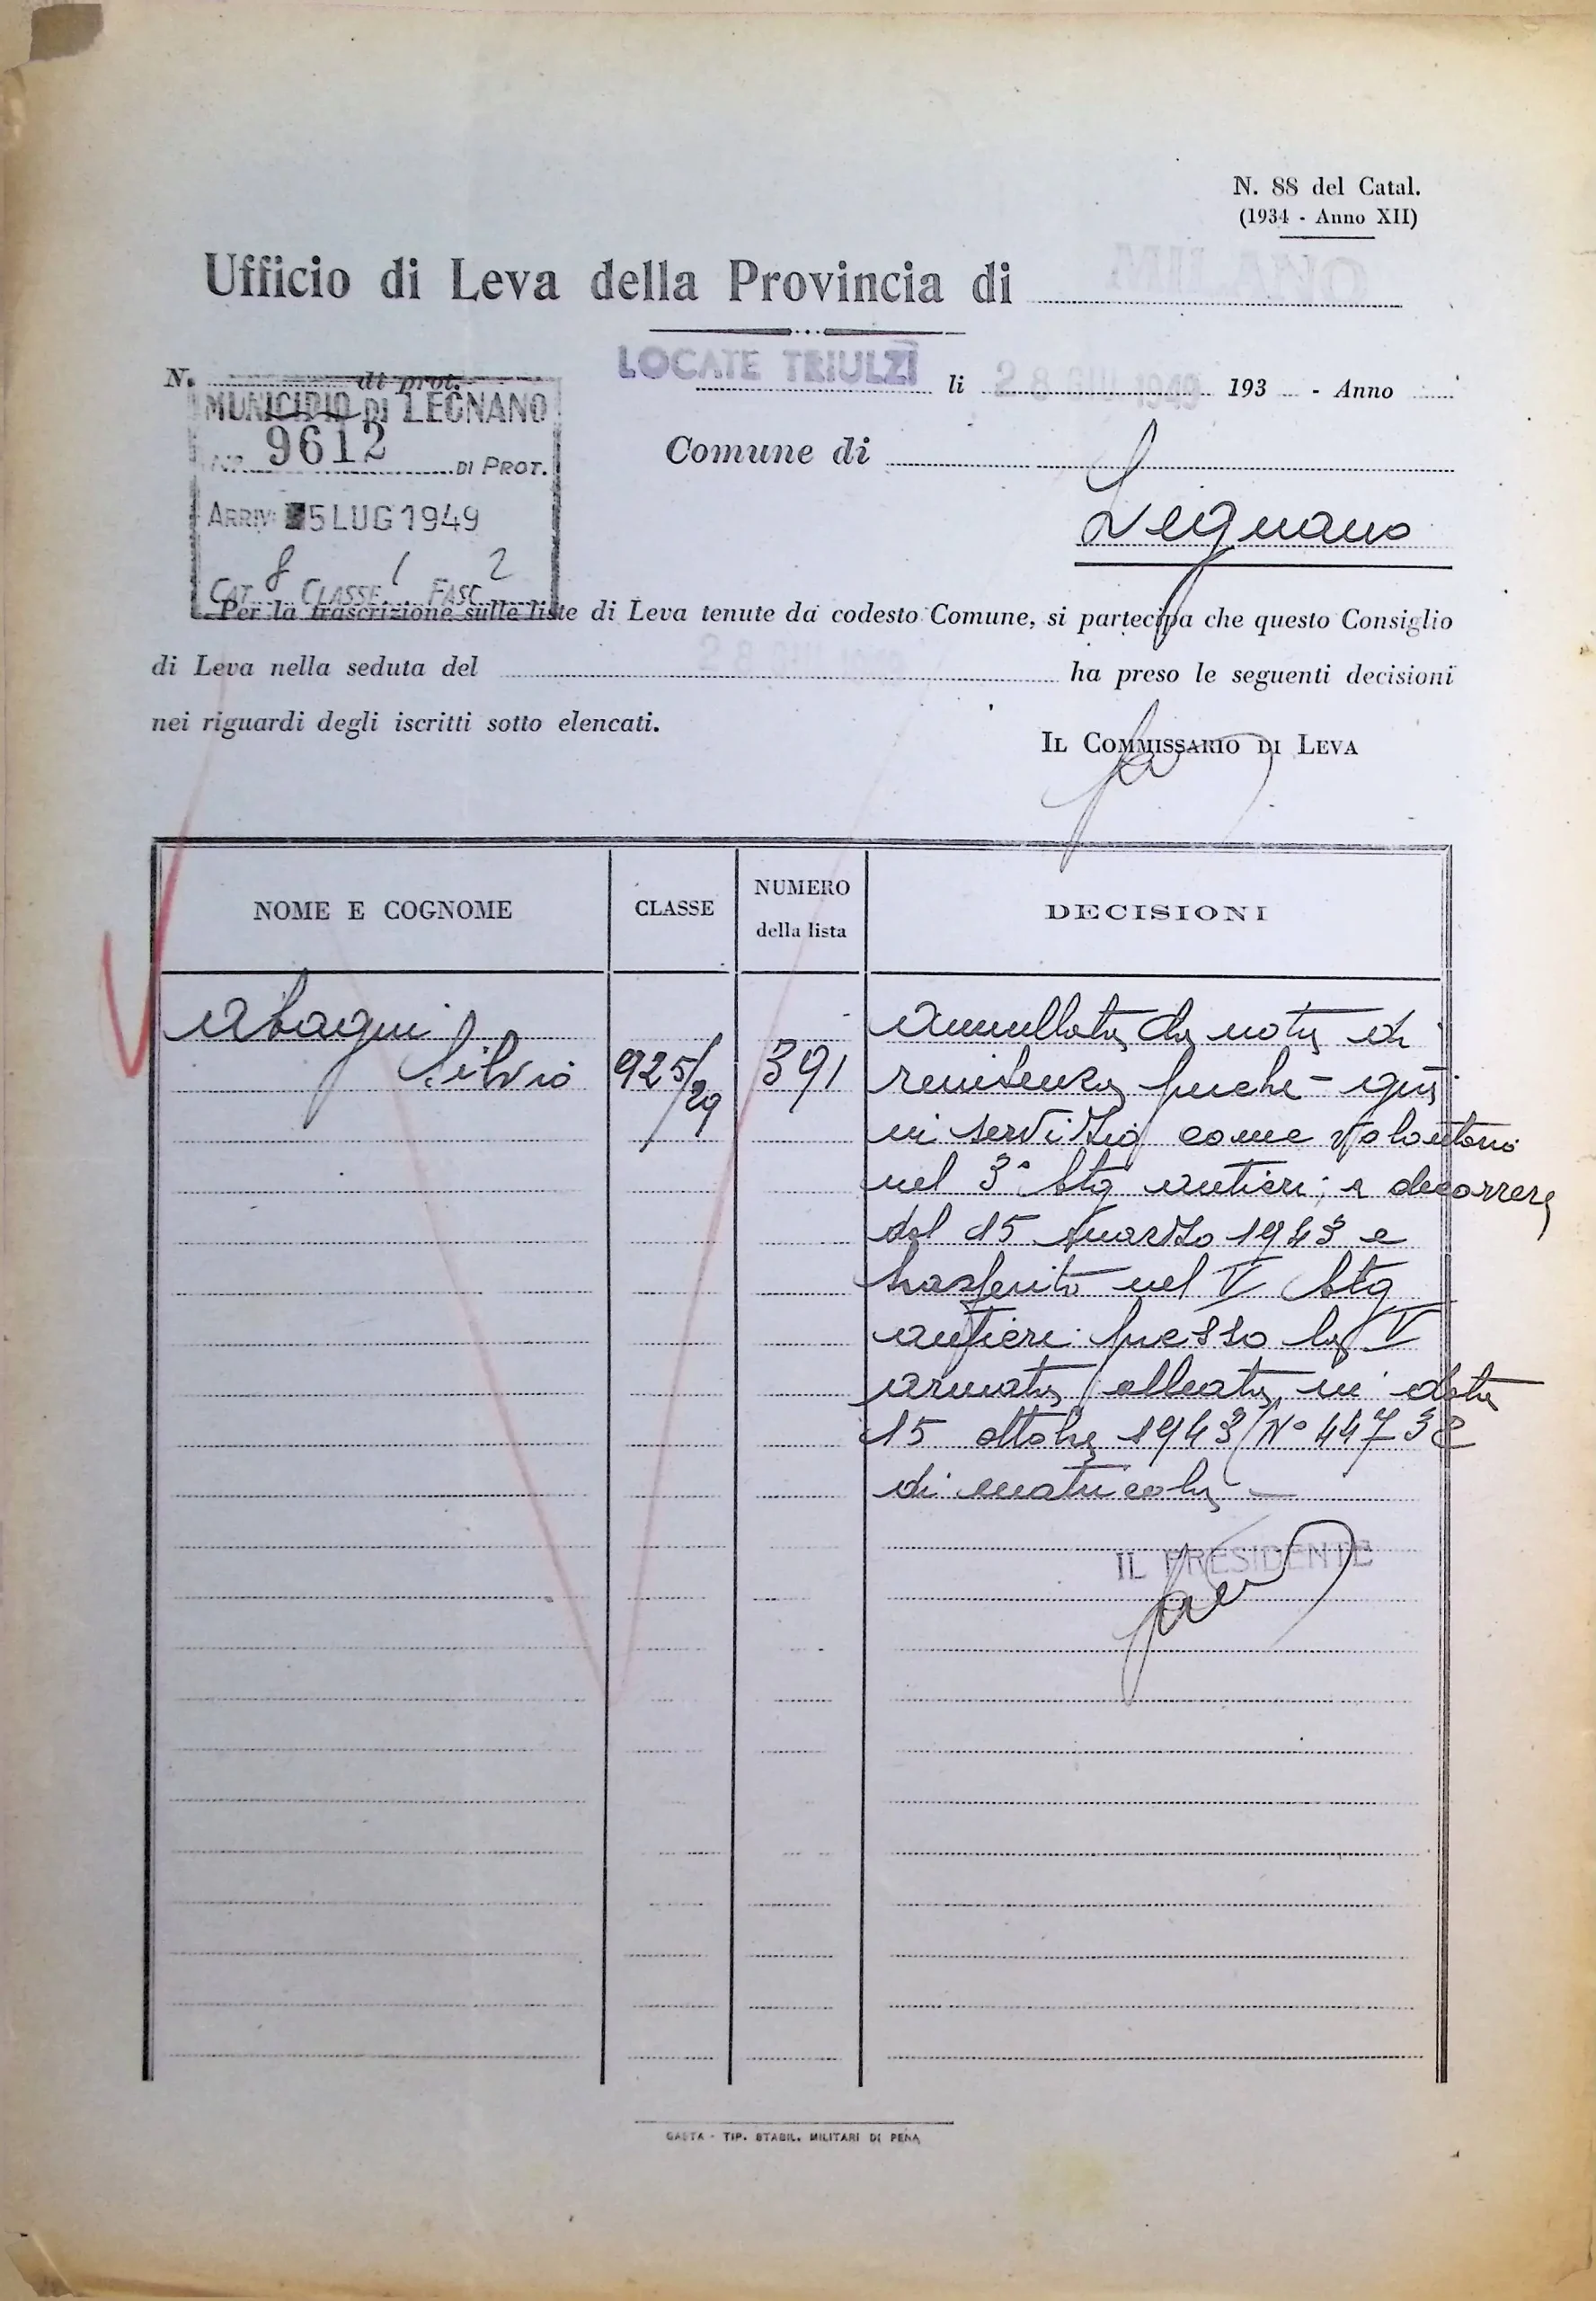 N. 88 del Catal.
(1934 - Anno XII)
Ufficio di Leva della Provincia di
MILANO
LOCATE TRIULZI li 28 GIU 1949 193 - Anno
N. di prot.
MUNICIPIO DI LEGNANO
N.° 9612 DI PROT.
ARRIV. 5 LUG 1949
CAT. 8 CLASSE 1 FASC 2
Comune di
Legnano
Per la trascrizione sulle liste di Leva tenute da codesto Comune, si partecipa che questo Consiglio
di Leva nella seduta del 28 GIU ha preso le seguenti decisioni
nei riguardi degli iscritti sotto elencati.
IL COMMISSARIO DI LEVA
NOME E COGNOME CLASSE NUMERO della lista DECISIONI
Silvio 925/29 391
annullata la nota di
renitenza perché già
in servizio come volontario
nel 3° btg arditi a decorrere
dal 15 marzo 1943 e
trasferito nel V btg
presso la V
armata alleata in data
15 ottobre 1943 (N° 44738
di matricola —
IL PRESIDENTE
GAETA - TIP. STABIL. MILITARI DI PENA